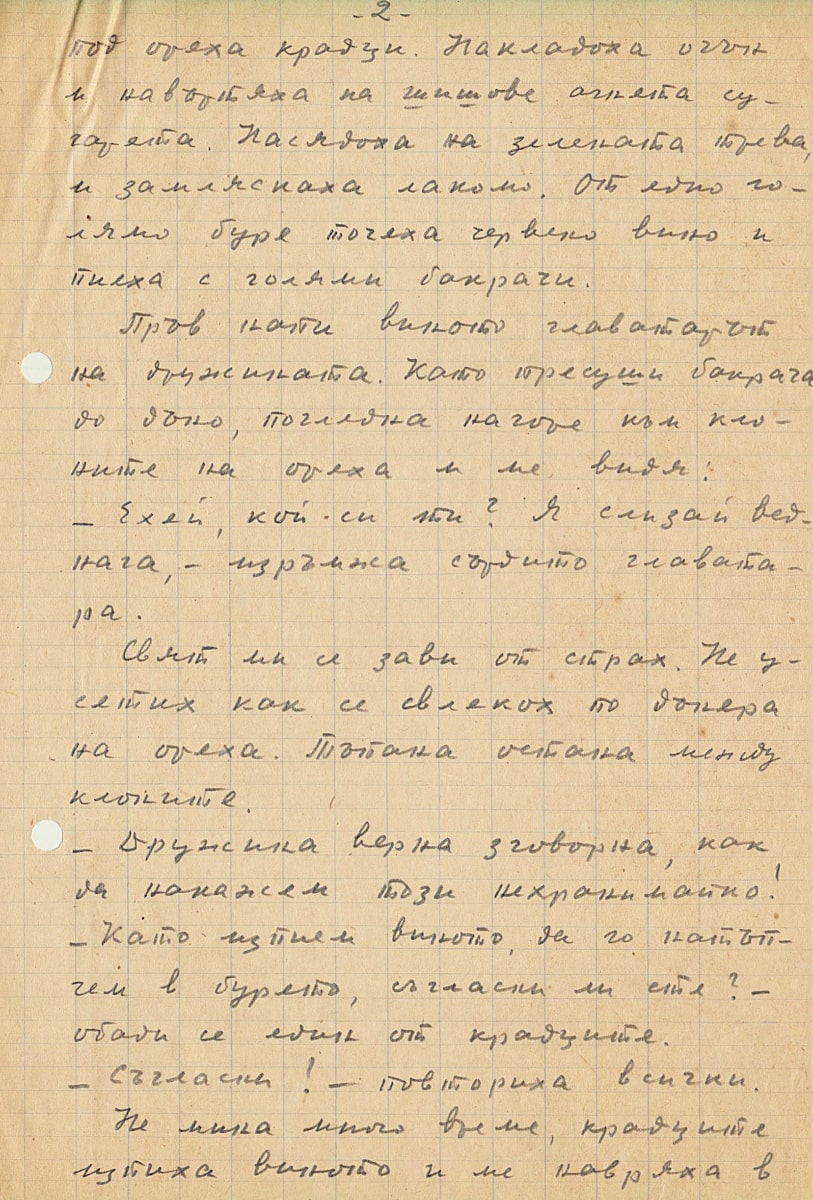 - 2 -
под ореха крадци. Накладоха огън
и навъртяха на шишове агнета су-
гарета. Насядоха на зелената трева,
и замляскаха лакомо. От едно го-
лямо буре точеха червено вино и
пиеха с големи бакрачи.
Пръв напи виното главатарът
на дружината. Като пресуши бакрача
до дъно, погледна нагоре към кло-
ните на ореха и ме видя:
- Ехей, кой си ти? Я слизай вед-
нага, - изръмжа сърдито главата-
ра.
Свят ми се зави от страх. Не у-
сетих как се свлекох по дънера
на ореха. Тъпана остана между
клоните.
- Дружина верна зговорна, как
да накажем този нехранимайко!
- Като изпием виното, да го натъп-
чем в бурето, съгласни ли сте? -
обади се един от крадците.
- Съгласни! - повториха всички.
Не мина много време, крадците
изпиха виното и ме навряха в